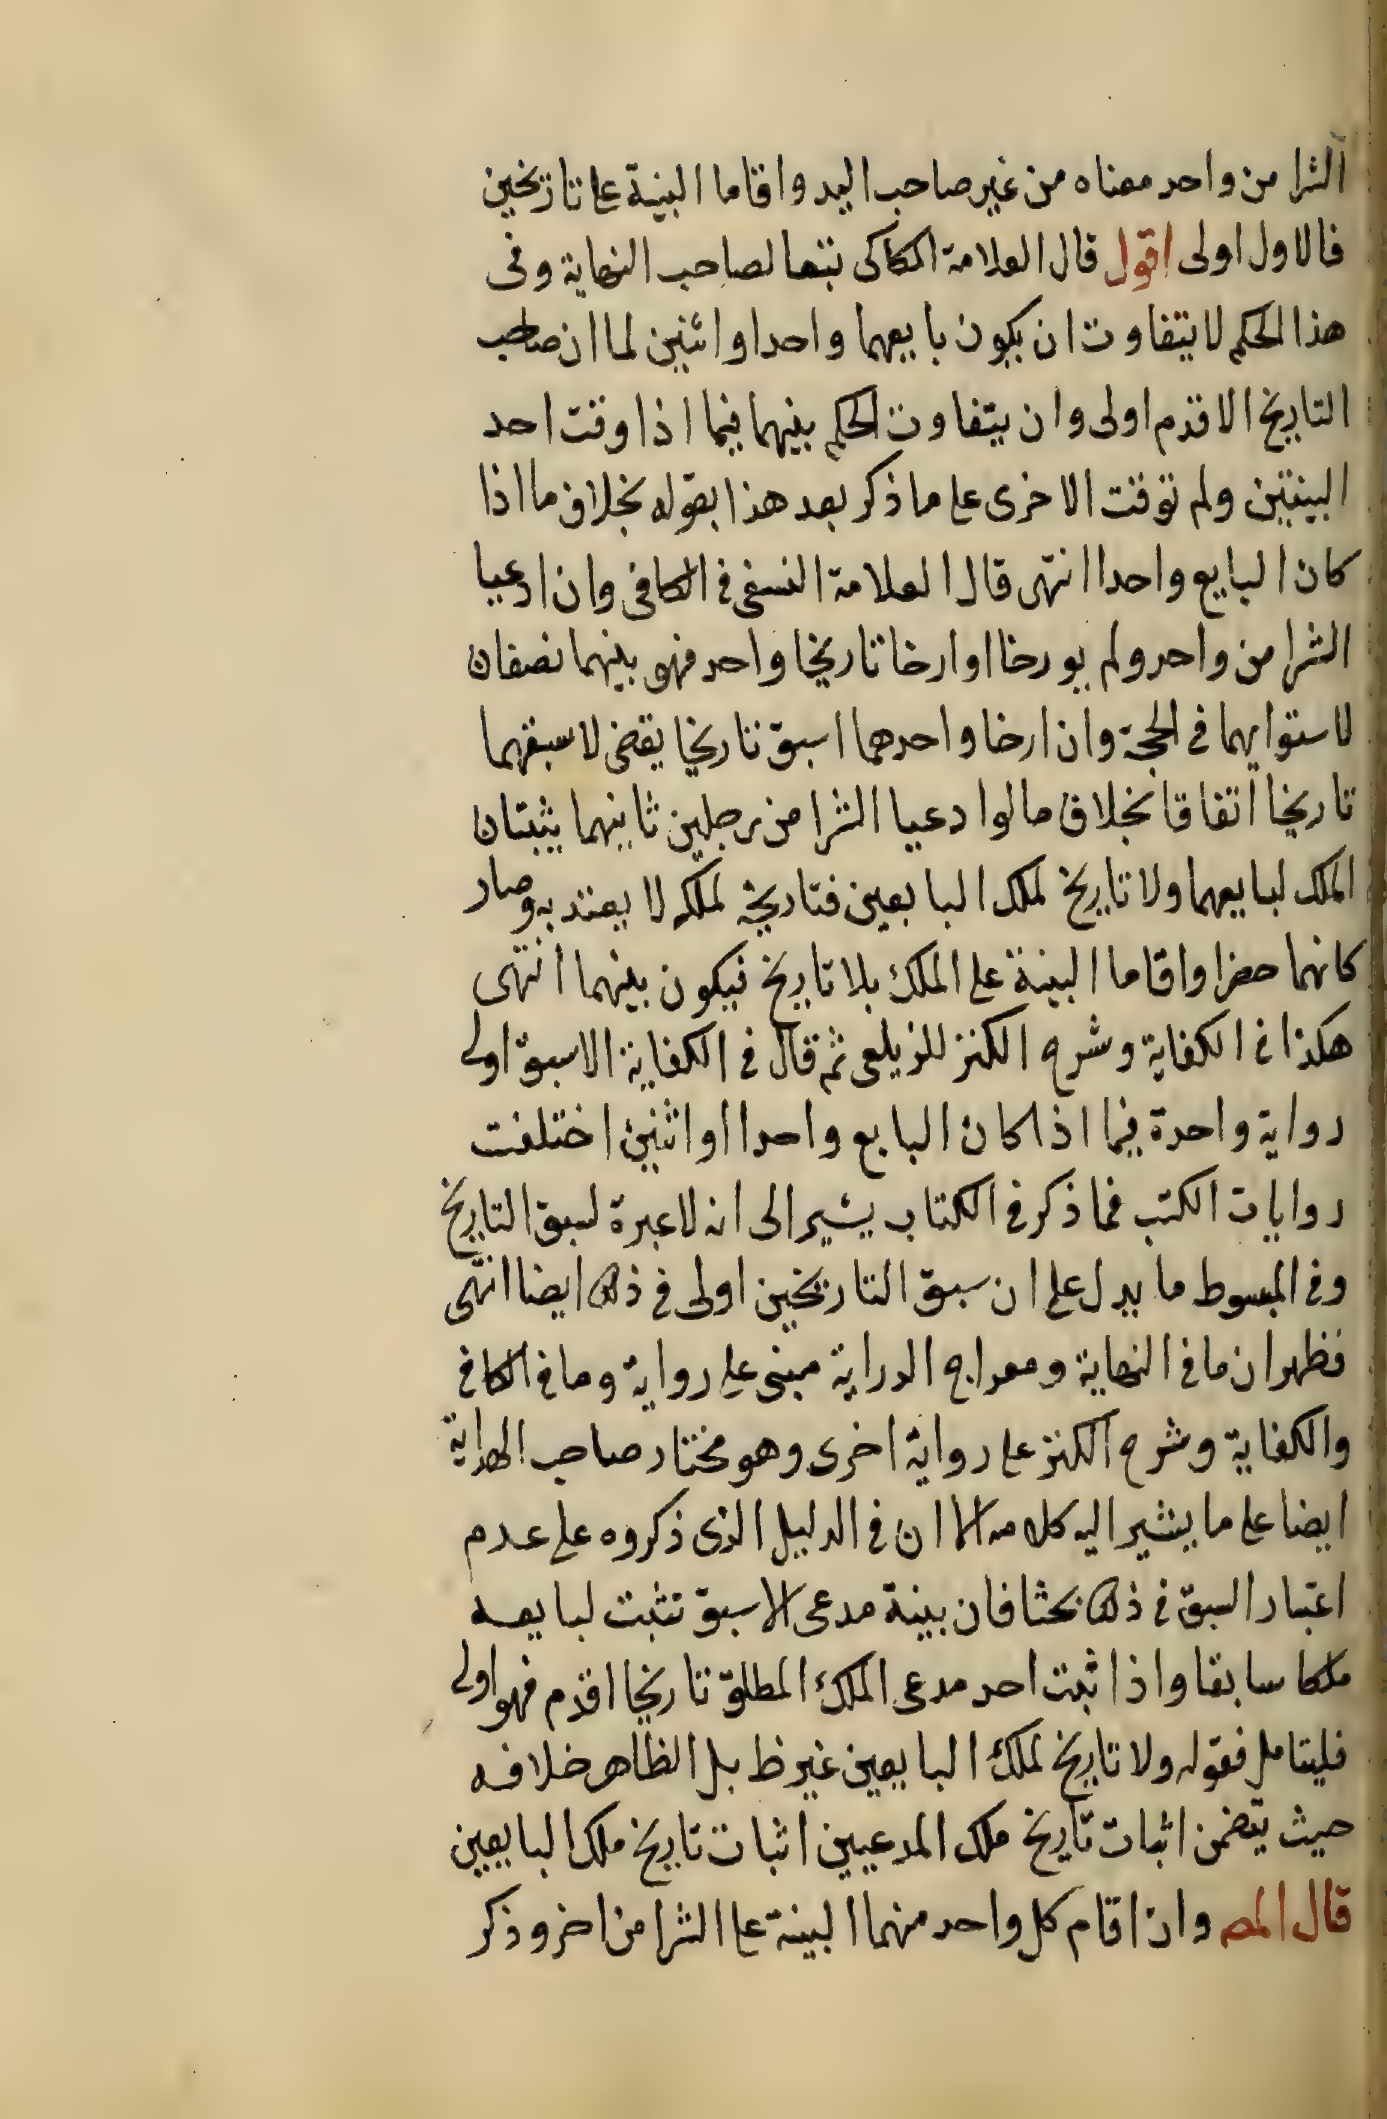 الشرا من واحد معناه من غير صاحب اليد واقاما البينة على تاريخين
فالاول اولى اقول قال العلامة الكاكى تبعا لصاحب النهاية وفى
هذا الحكم لا يتفاوت ان يكون بايعهما واحدا او اثنين لما ان صاحب
التاريخ الاقدم اولى وان يتفاوت الحكم بينهما فيما اذا وقت احد
البينتين ولم توقت الاخرى على ما ذكر بعد هذا بقوله بخلاف ما اذا
كان البايع واحدا انتهى قال العلامة النسفى فى الكافى وان ادعيا
الشرا من واحد ولم يورخا او ارخا تاريخا واحد فهو بينهما نصفان
لاستوايهما فى الحجة وان ارخا واحدهما اسبق تاريخا يقضى لاسبقهما
تاريخا اتفاقا بخلاف ما لوا دعيا الشرا من رجلين ثانيهما يثبتان
الملك لبايعهما ولا تاريخ لملك البايعين فتاريخه لملكه لا يعتد به وصار
كانهما حضرا واقاما البينة على الملك بلا تاريخ فيكون بينهما انتهى
هكذا فى الكفاية وشرح الكنز للزيلعى ثم قال فى الكفاية الاسبق اولى
رواية واحدة فيما اذا كان البايع واحدا اواثنين اختلفت
روايات الكتب فما ذكر فى الكتاب يشير الى انه لا عبرة لسبق التاريخ
وفى المبسوط ما يدل على ان سبق التاريخين اولى فى ذلك ايضا انتهى
فظهر ان ما فى النهاية ومعراج الدراية مبنى على رواية وما فى الكافى
والكفاية وشرح الكنز على رواية اخرى وهو مختار صاحب الهداية
ايضا على ما يشير اليه كلامه الا ان فى الدليل الذى ذكروه على عدم
اعتبار السبق فى ذلك بحثا فان بينة مدعى الاسبق تثبت لبايعه
ملكا سابقا واذا ثبت احد مدعى الملك المطلق تاريخا اقدم فهو اولى
فليتامل فقوله ولا تاريخ لملك البايعين غير ظ بل الظاهر خلافه
حيث يتضمن اثبات تاريخ ملك المدعيين اثبات تاريخ ملك البايعين
قال المص وان اقام كل واحد منهما البينة على الشرا من اخر وذكر